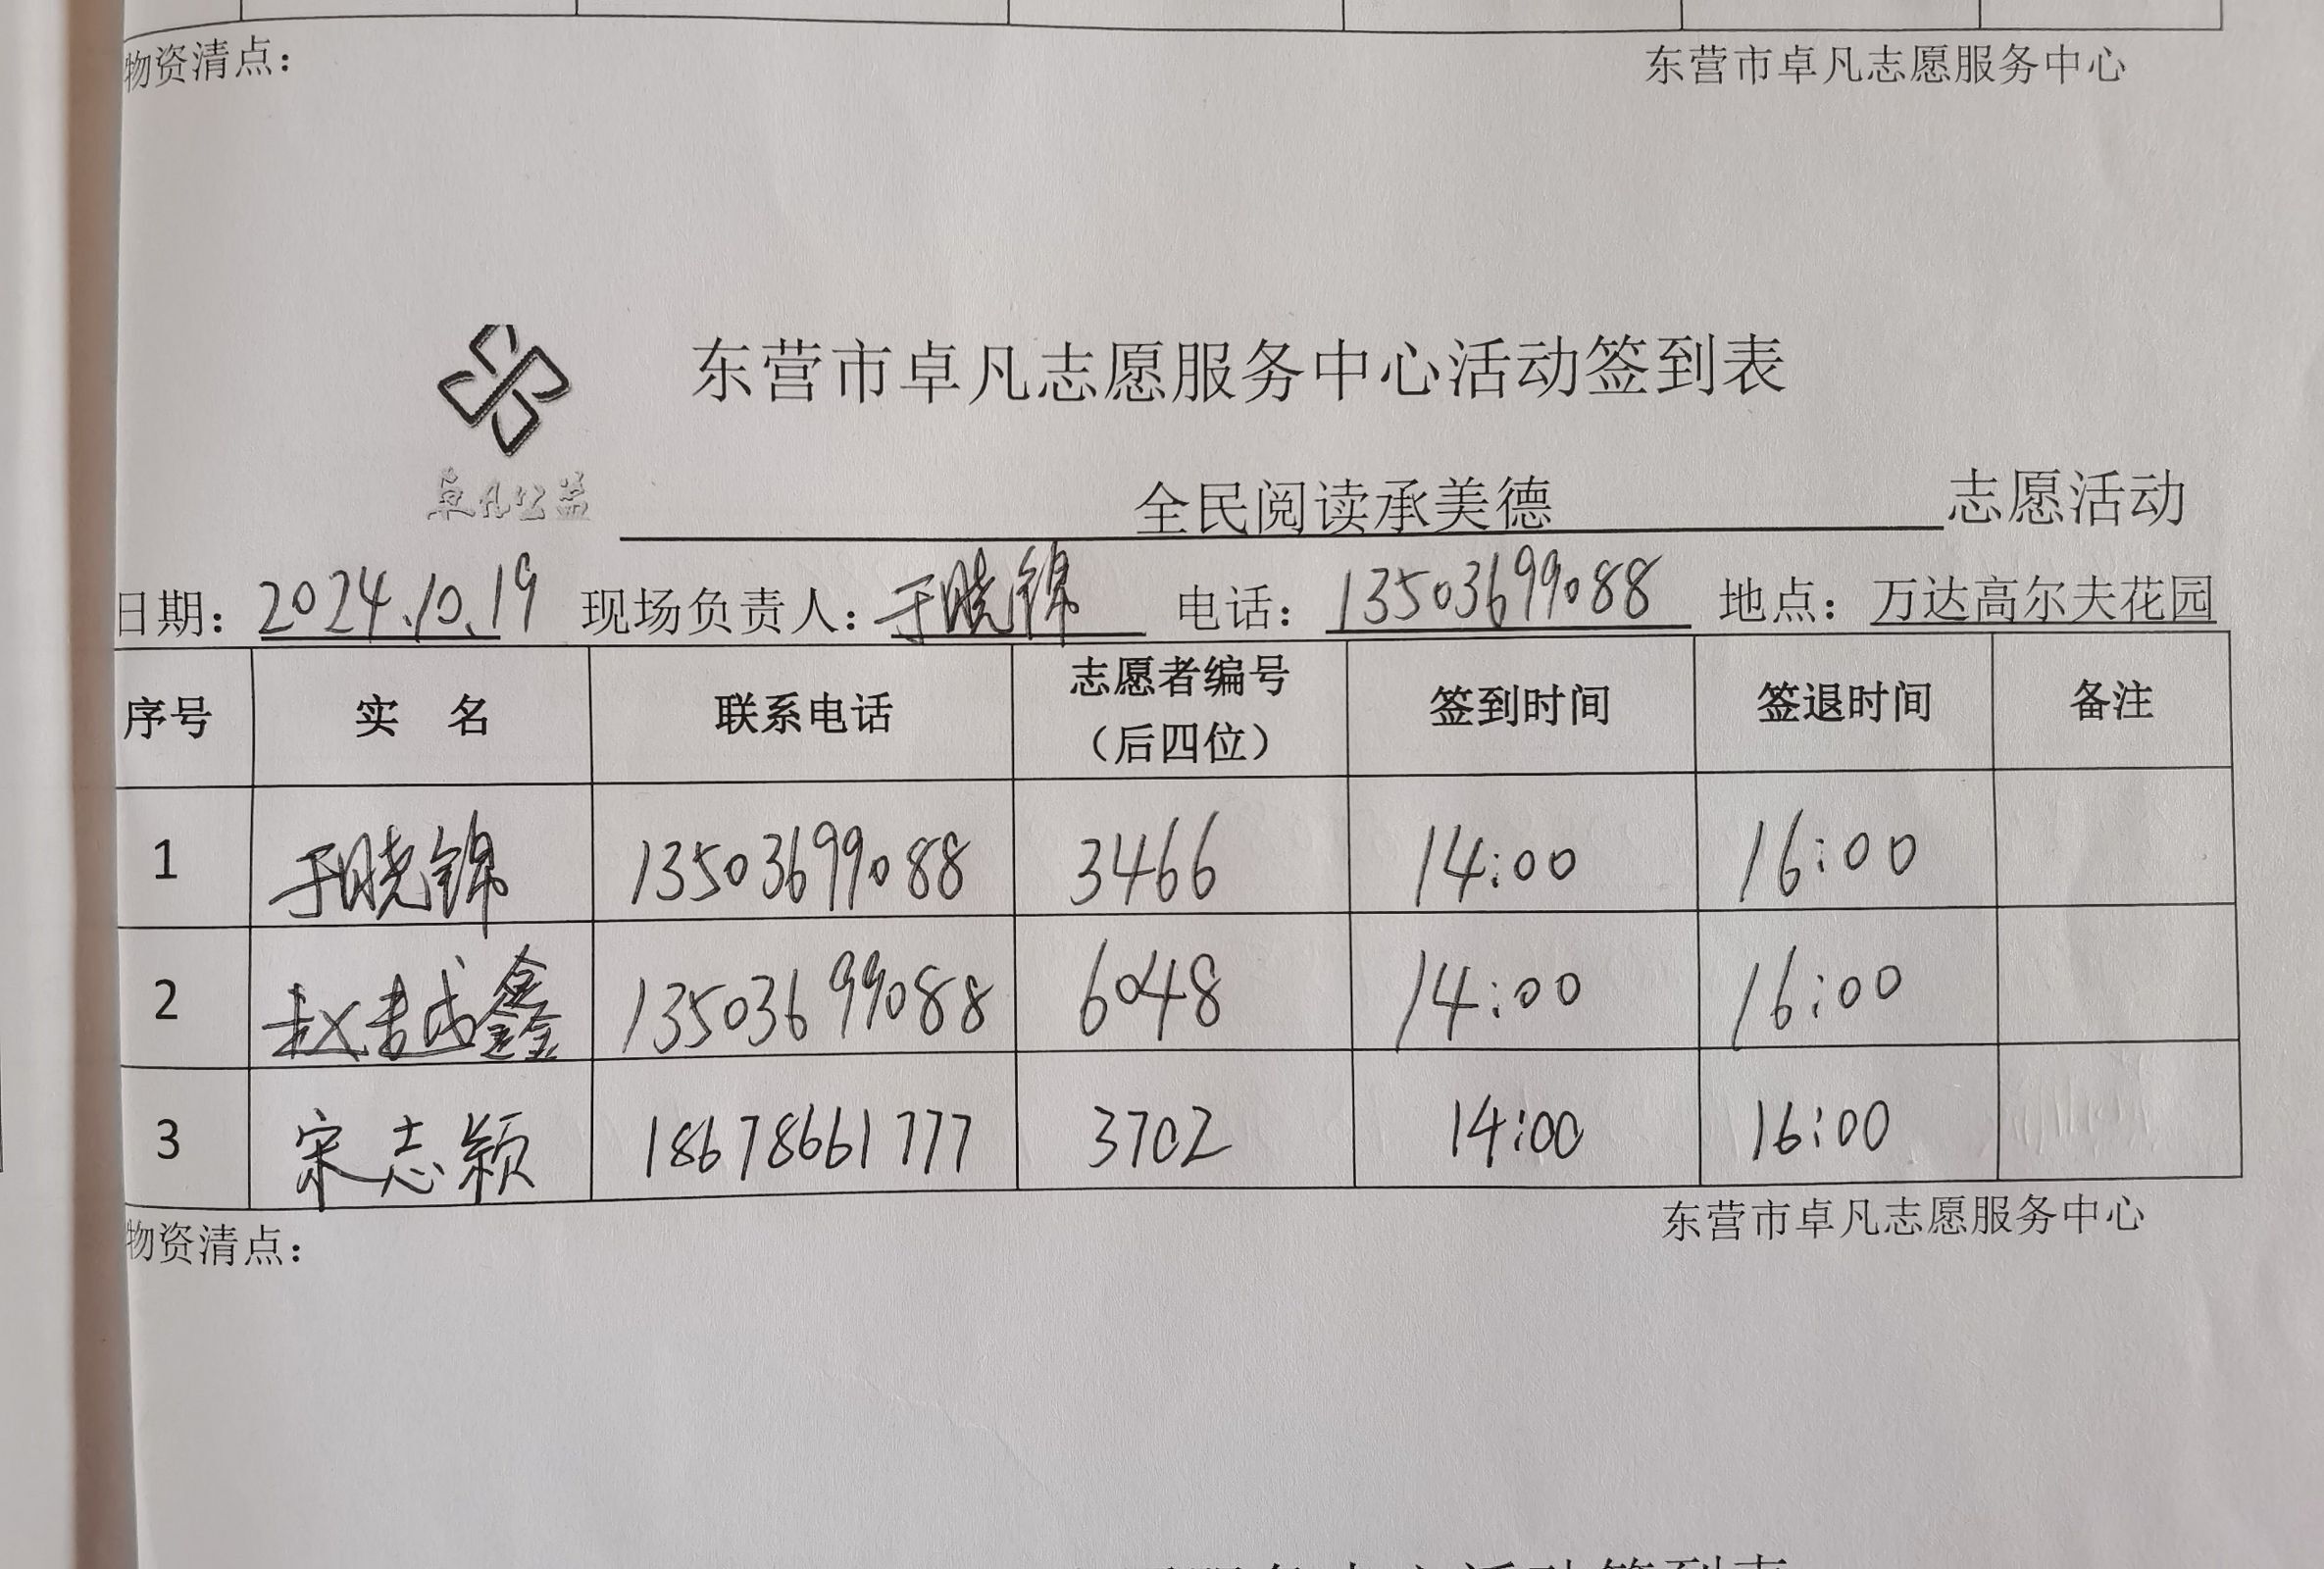 物资清点：
东营市卓凡志愿服务中心
东营市卓凡志愿服务中心活动签到表
卓凡公益
全民阅读承美德 志愿活动
日期：2024.10.19 现场负责人：于晓锦 电话：13503699088 地点：万达高尔夫花园
序号 实 名 联系电话 志愿者编号（后四位） 签到时间 签退时间 备注
1 于晓锦 13503699088 3466 14:00 16:00
2 赵越鑫 13503699088 6048 14:00 16:00
3 宋志颖 18678661777 3702 14:00 16:00
东营市卓凡志愿服务中心
物资清点：